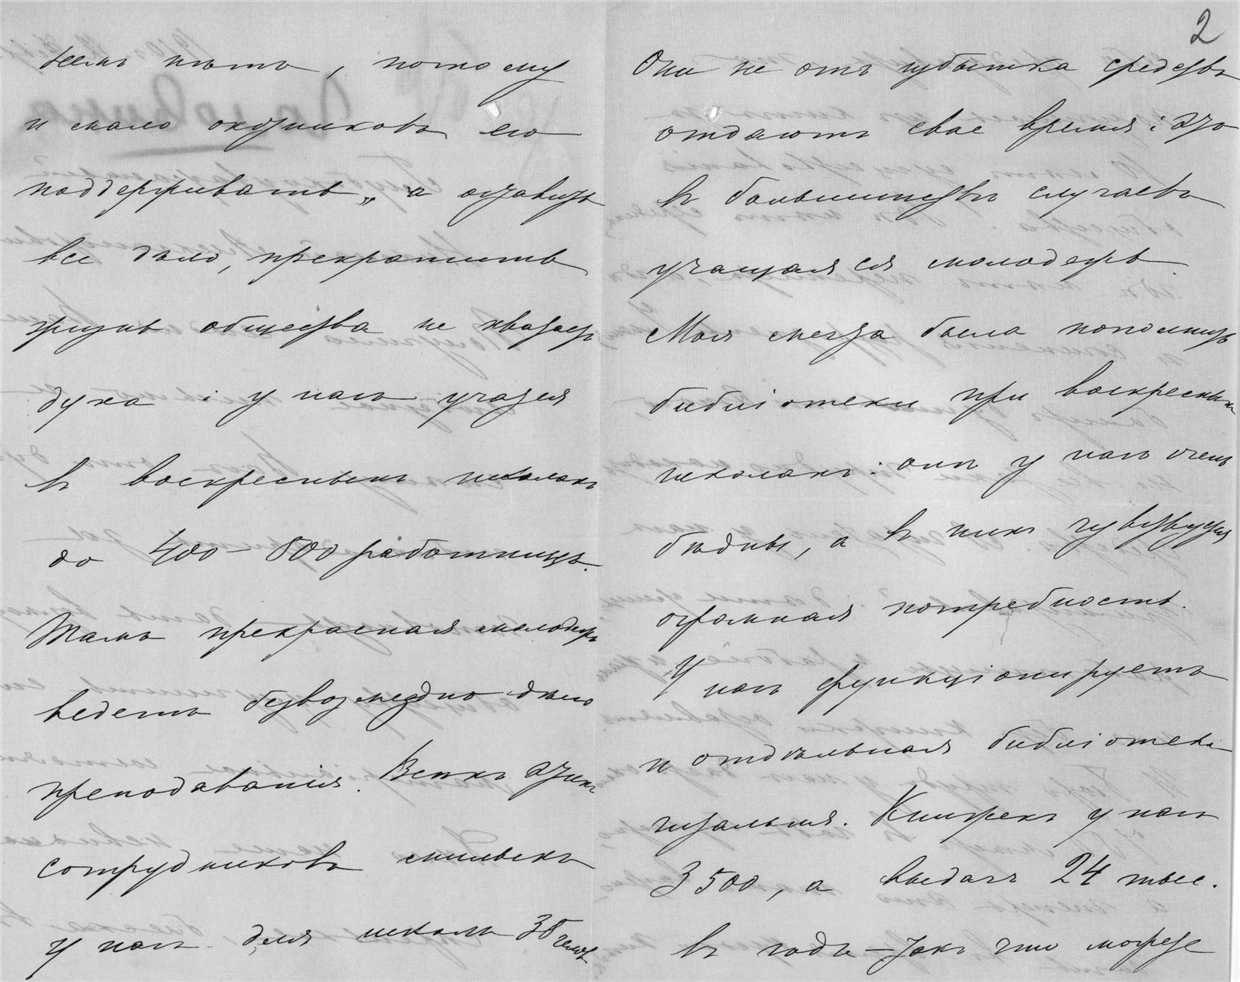 2
немъ нѣтъ, потому
и мало охотниковъ его
поддерживать, а оставить
все дѣло, прекратить
жизнь общества не хватаетъ
духа: у насъ учатся
въ воскресныхъ школахъ
до 400–500 работницъ.
Тамъ прекрасная молодежь
ведетъ безвозмездно дѣло
преподаванія. Всѣхъ этихъ
сотрудниковъ милыхъ
у насъ для школъ 35 челов.
Они не отъ избытка средствъ
отдаютъ свое время: это
въ большинствѣ случаевъ
учащаяся молодежь.
Моя мечта была пополнить
библіотеки при воскресныхъ
школахъ: онѣ у насъ очень
бѣдны, а въ нихъ чувствуется
огромная потребность.
У насъ функціонируетъ
и отдѣльная библіотека
читальня. Книжекъ у насъ
3500, а выдачъ 24 тыс.
въ годъ – такъ что можете